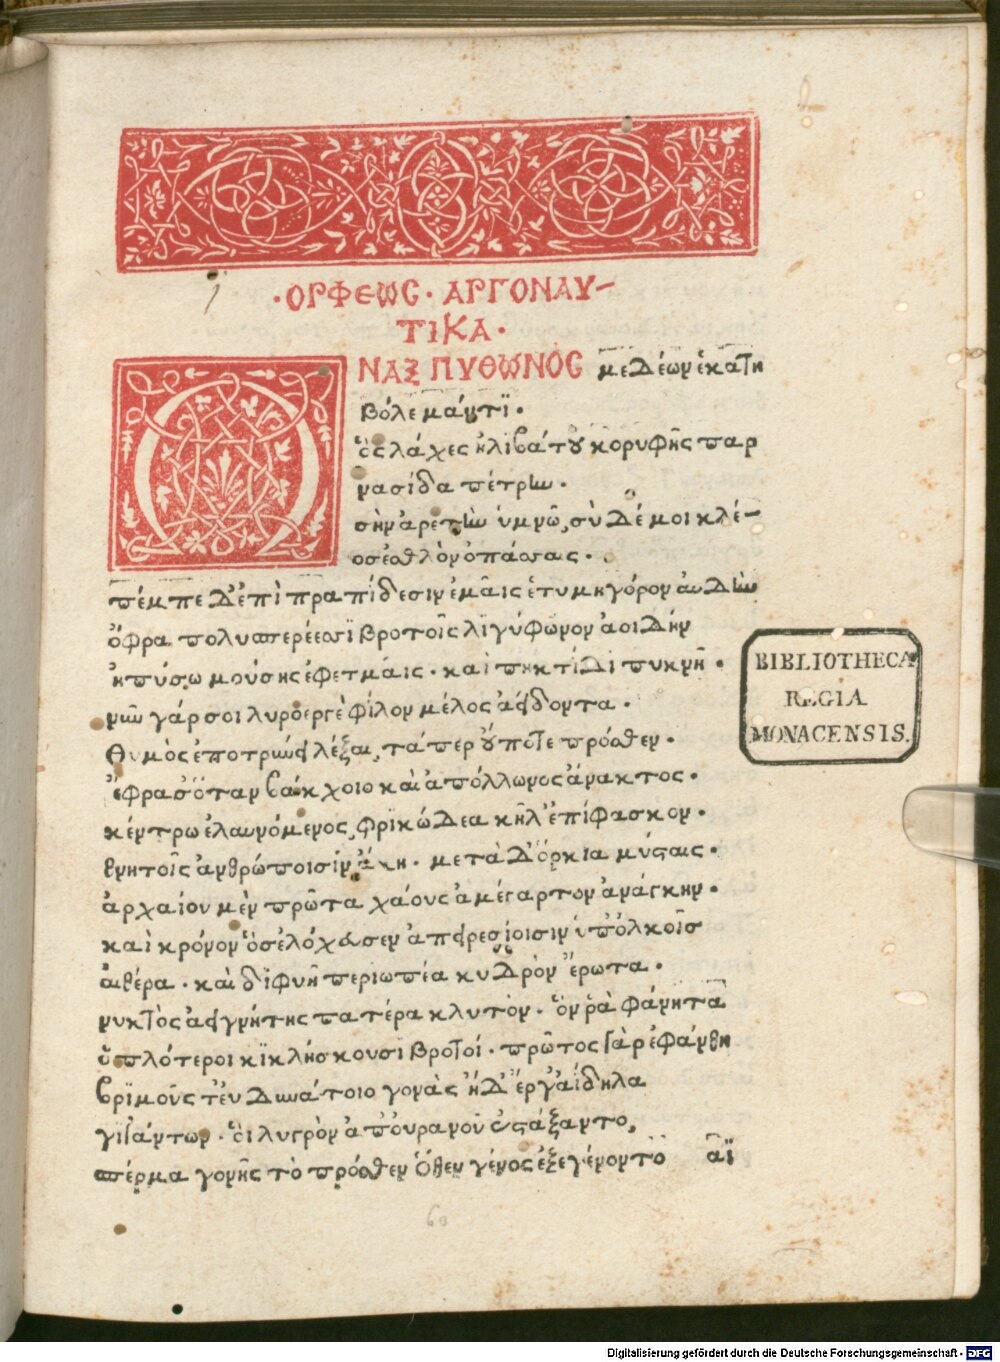 ·ΟΡΦΕΩϹ· ΑΡΓΟΝΑΥ-
ΤΙΚΑ·
Ω ΝΑΞ ΠΥΘΩΝΟϹ μεδέων ἑκατη
βόλε μάντϊ·
ὃς λάχες ἠλιβάτου κορυφῆς παρ
νασίδα πέτρην·
σὴν ἀρετὴν ὑμνῶ, σὺ δέ μοι κλέ-
οσ ἐσθλὸν ὀπάσσας·
πέμπε δ' ἐπὶ πραπίδεσιν ἐμαῖς ἐτυμηγόρον αὐδὴν
ὄφρα πολυσπερέεσσϊ βροτοῖς λιγύφωνον ἀοιδὴν
ἠπύσω μούσης ἐφετμαῖς· καὶ πηκτίδι πυκνῆ·
νῦν γάρ σοι λυροεργὲ φίλον μέλος ἀείδοντα·
θυμὸς ἐποτρύνει λέξαι, τά περ οὔποτε πρόσθεν·
ἔφρασ' ὅταν βάκχοιο καὶ ἀπόλλωνος ἄνακτος·
κέντρω ἐλαυνόμενος, φρικώδεα κῆλ' ἐπίφασκον·
θνητοῖς ἀνθρώποισιν ἄκη· μετὰ δ' ὅρκια μύσταις·
ἀρχαίον μὲν πρῶτα χάους ἀμέγαρτον ἀνάγκην·
καὶ κρόνον ὃσ ἐλόχευσεν ἀπειρεσίοισιν ὑπ' ὁλκοῖσ
αἰθέρα· καὶ διφυῆ περιωπέα κυδρὸν ἔρωτα·
νυκτὸς ἀειγνήτης πατέρα κλυτόν· ὃν ῥὰ φάνητα
ὁπλότεροι κϊκλήσκουσϊ βροτοί· πρῶτος γὰρ ἐφάνθη
βρϊμοῦς τ' εὐδυνάτοιο γονὰς ἠδ' ἔργ' ἀΐδηλα
γιγάντων· οἳ λυγρὸν ἀπ' οὐρανοῦ ἐστάξαντο,
σπέρμα γονῆς τὸ πρόσθεν ὅθεν γένος ἐξεγένοντο αϊ
BIBLIOTHECA
REGIA
MONACENSIS.
60
Digitalisierung gefördert durch die Deutsche Forschungsgemeinschaft - DFG